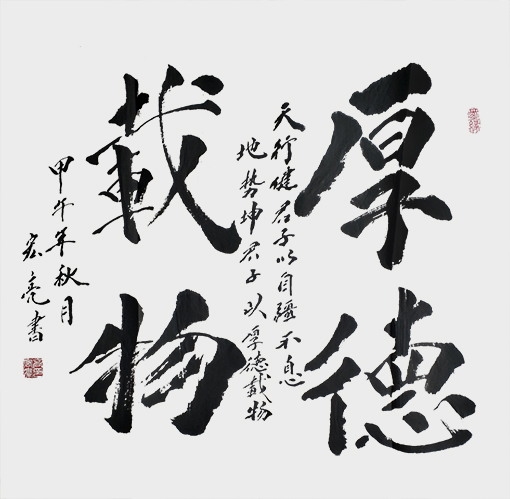 厚德
天行健君子以自疆不息
地势坤君子以厚德載物
載物
甲午年秋月
宏亮書